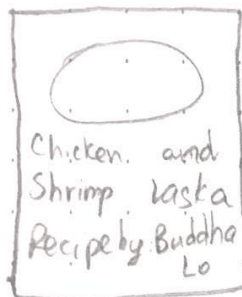 Chicken and
Shrimp Laska
Recipe by Buddha
Lo